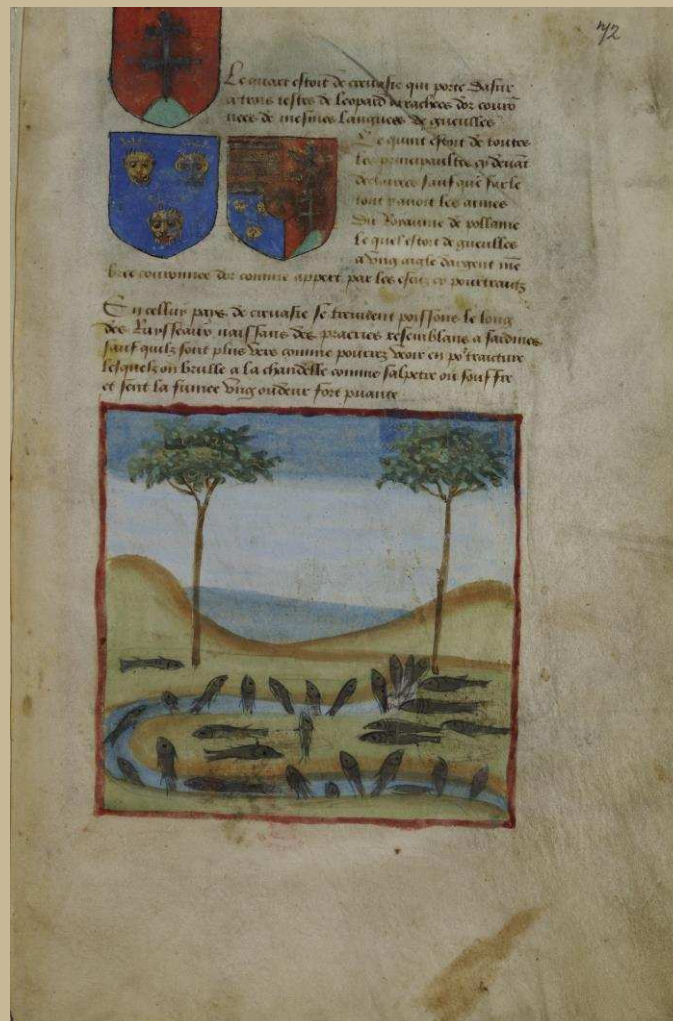 72
Le quart estoit de croasie qui porte dasur
a trois testes de leopard arachees dor couro
nees de mesmes languees de gueulles
Le quint estoit de toutes
les principaultes cy devant
declairees sauf que sur le
tout y avoit les armes
du Royaume de pollanie
le quel estoit de gueulles
a vng aigle dargent me
bree couronnee dor comme appert par les escuz cy pourtraitz
En celluy pays de croasie se treuvent poissons le long
des Ruysseaux naissans des praeries resemblans a sardines
sauf quilz sont plus vers comme pourrez veoir en po traicture
lesquelz on brulle a la chandelle comme salpetre ou souffre
et sent la fumee vng oudeur fort puante